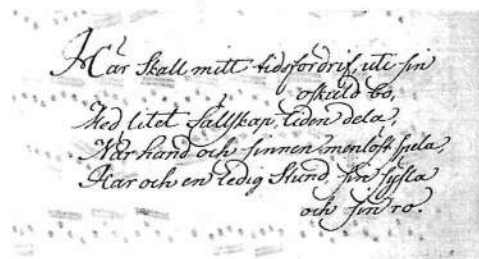 Här skall mitt tidsfördrif, uti sin
oskuld bo,
Med litet sällskap, tiden dela,
När hand och sinnen menlöst spela,
Har och en ledig Stund, sin syssla
och sin ro.